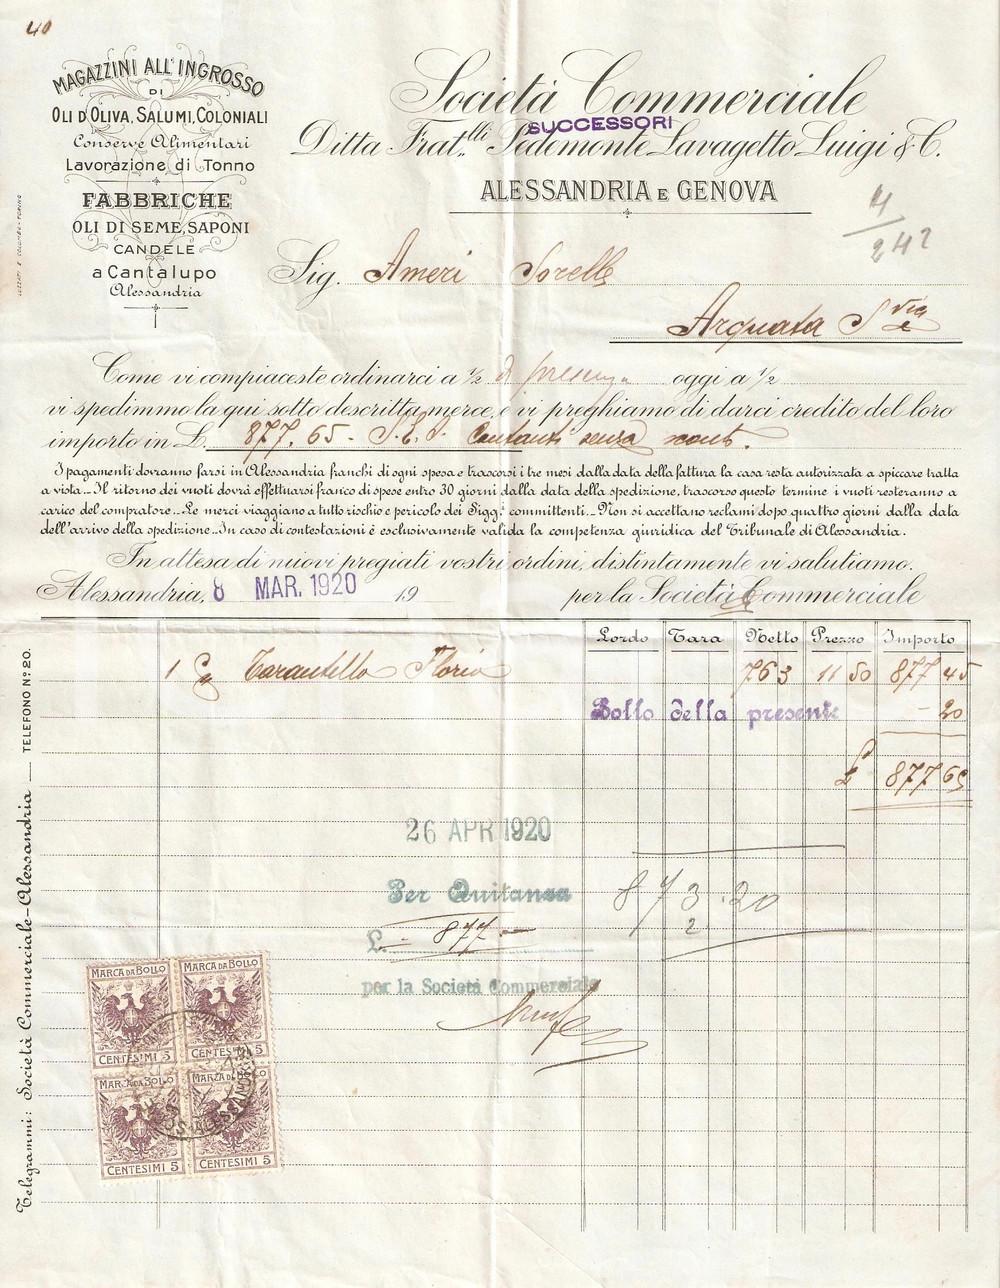 40
MAGAZZINI ALL'INGROSSO
DI
OLI D'OLIVA, SALUMI, COLONIALI
Conserve Alimentari
Lavorazione di Tonno
FABBRICHE
OLI DI SEME, SAPONI
CANDELE
a Cantalupo
Alessandria
Società Commerciale
SUCCESSORI
Ditta Frat.lli Pedemonte Lavagetto Luigi & C.
ALESSANDRIA E GENOVA
4
242
Sig. Ameri Sorelle
Arquata S
Come vi compiaceste ordinarci a ½ oggi a ½
vi spedimmo la qui sotto descritta merce, e vi preghiamo di darci credito del loro
importo in £. 877.65 - S.E.O. Contanti senza sconto.
I pagamenti dovranno farsi in Alessandria franchi di ogni spesa e trascorsi i tre mesi dalla data della fattura la casa resta autorizzata a spiccare tratta
a vista._ Il ritorno dei vuoti dovrà effettuarsi franco di spese entro 30 giorni dalla data della spedizione, trascorso questo termine i vuoti resteranno a
carico del compratore._ Le merci viaggiano a tutto rischio e pericolo dei Sigg.i committenti._ Non si accettano reclami dopo quattro giorni dalla data
dell'arrivo della spedizione._ In caso di contestazioni è esclusivamente valida la competenza giuridica del Tribunale di Alessandria.
In attesa di nuovi pregiati vostri ordini, distintamente vi salutiamo.
Alessandria, 8 MAR. 1920 19 per la Società Commerciale
Lordo Tara Netto Prezzo Importo
1 Tarantello Florio 763 11 50 877 45
Bollo della presente - 20
£ 877 65
26 APR 1920
Per Quitanza
873.20
2
£.- 877 -
per la Società Commerciale
MARCA DA BOLLO
CENTESIMI 5
MARCA DA BOLLO
CENTESIMI 5
MARCA DA BOLLO
CENTESIMI 5
MARCA DA BOLLO
CENTESIMI 5
ALESSANDRIA
Telegrammi: Società Commerciale-Alessandria _ TELEFONO No 20.